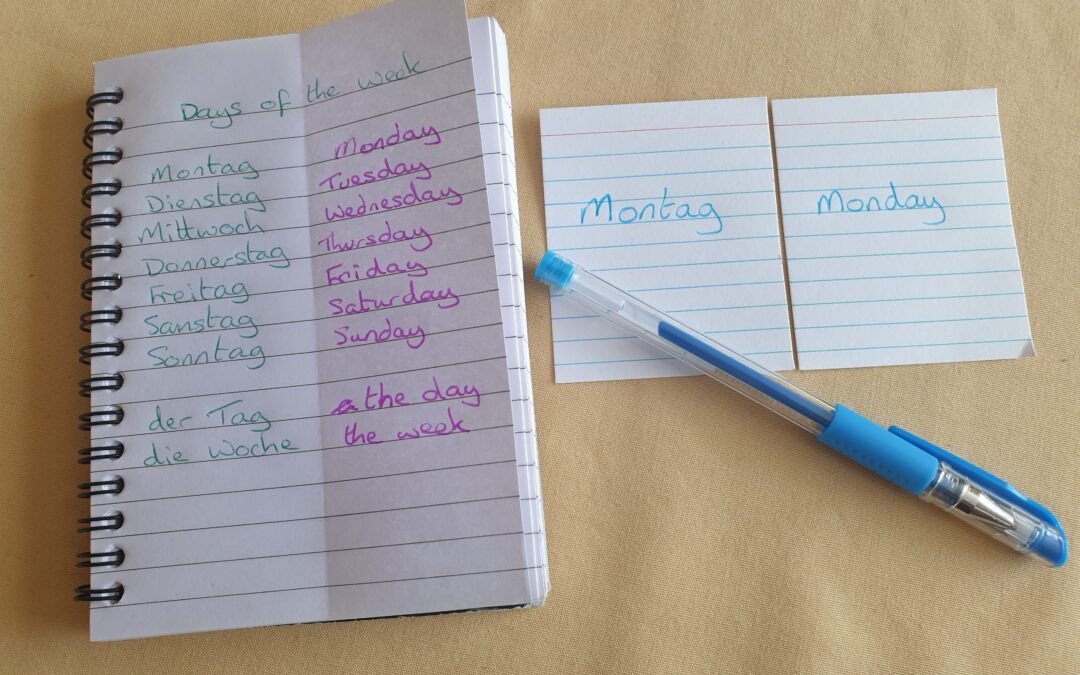 Days of the week
Montag Monday
Dienstag Tuesday
Mittwoch Wednesday
Donnerstag Thursday
Freitag Friday
Sanstag Saturday
Sonntag Sunday
der Tag the day
die Woche the week
Montag
Monday